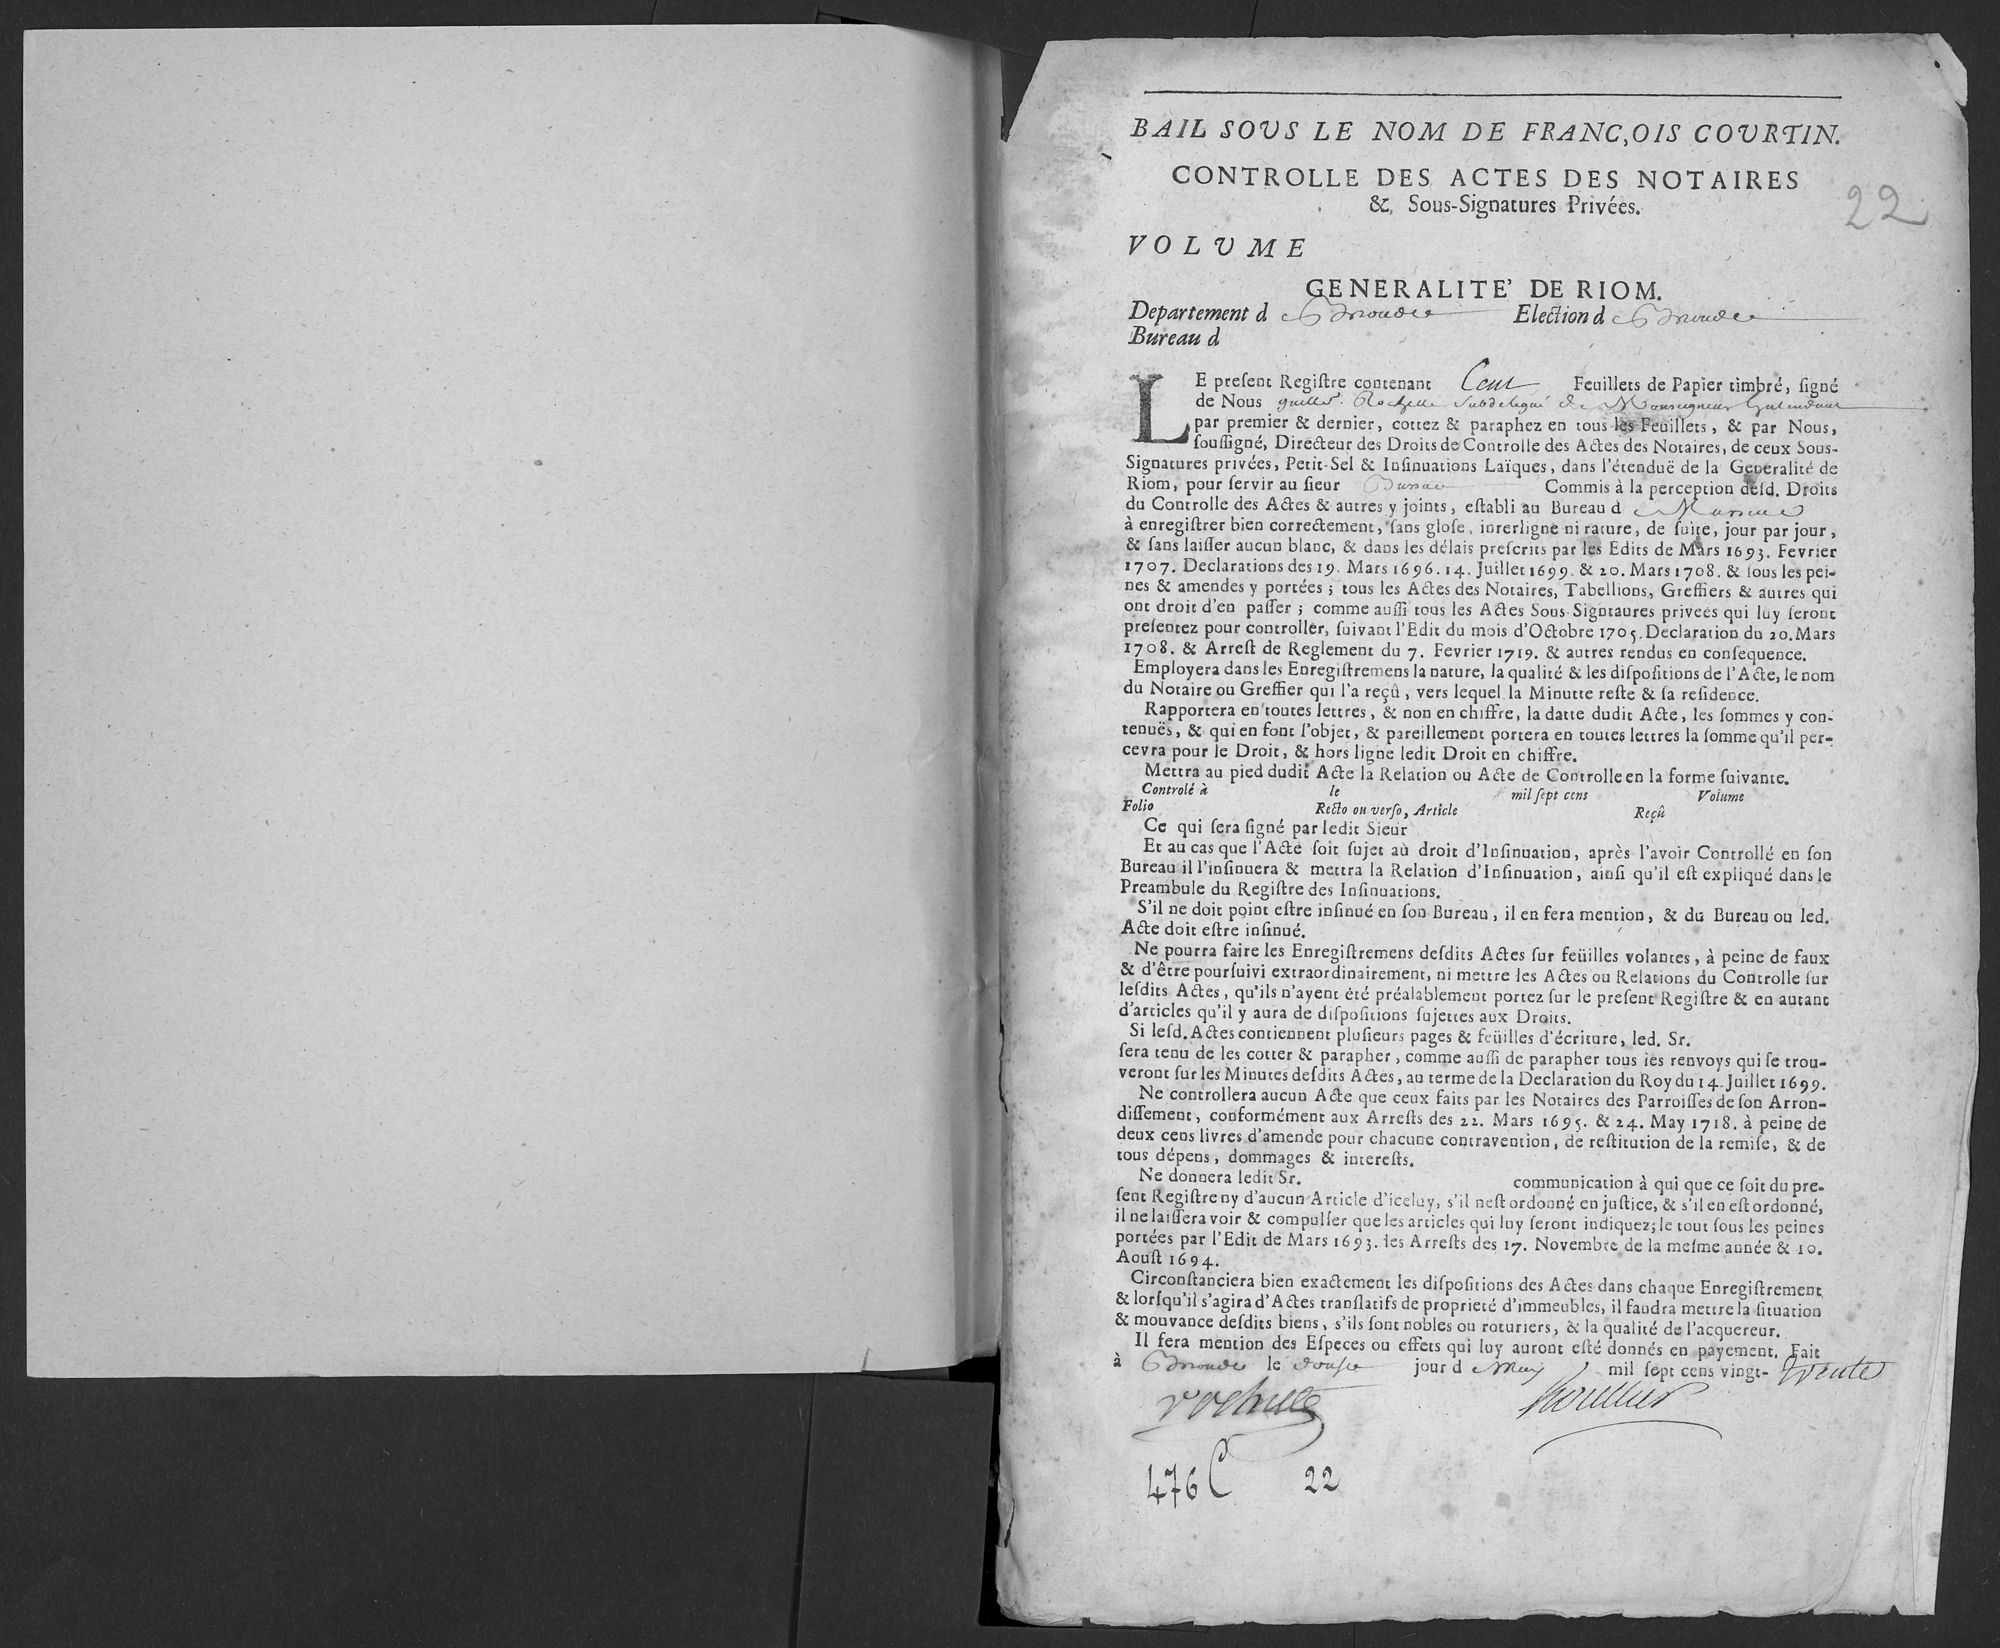 BAIL SOUS LE NOM DE FRANC,OIS COURTIN.
CONTROLLE DES ACTES DES NOTAIRES
22
&, Sous-Signatures Privées.
VOLUME
GENERALITE' DE RIOM.
Departement d Brioude Election d Brioude
Bureau d
LE preſent Regiſtre contenant Cent Feuillets de Papier timbré, ſigné
de Nous Rochette Subdelegué de Monseigneur Lintendant
par premier & dernier, cottez & paraphez en tous les Feuillets, & par Nous,
ſouſſigné, Directeur des Droits de Controlle des Actes des Notaires, de ceux Sous-
Signatures privées, Petit-Sel & Inſinuations Laïques, dans l'étenduë de la Generalité de
Riom, pour ſervir au ſieur Commis à la perception deſd. Droits
du Controlle des Actes & autres y joints, eſtabli au Bureau d
à enregiſtrer bien correctement, ſans gloſe, inrerligne ni rature, de ſuite, jour par jour,
& ſans laiſſer aucun blanc, & dans les délais preſcrits par les Edits de Mars 1693. Fevrier
1707. Declarations des 19. Mars 1696. 14. Juillet 1699. & 20. Mars 1708. & ſous les pei-
nes & amendes y portées ; tous les Actes des Notaires, Tabellions, Greffiers & autres qui
ont droit d'en paſſer ; comme auſſi tous les Actes Sous Signtaures privees qui luy ſeront
preſentez pour controller, ſuivant l'Edit du mois d'Octobre 1705. Declaration du 20. Mars
1708. & Arreſt de Reglement du 7. Fevrier 1719. & autres rendus en conſequence.
Employera dans les Enregiſtremens la nature, la qualité & les diſpoſitions de l'Acte, le nom
du Notaire ou Greffier qui l'a reçû, vers lequel la Minutte reſte & ſa reſidence.
Rapportera en toutes lettres, & non en chiffre, la datte dudit Acte, les ſommes y con-
tenuës, & qui en font l'objet, & pareillement portera en toutes lettres la ſomme qu'il per-
cevra pour le Droit, & hors ligne ledit Droit en chiffre.
Mettra au pied dudit Acte la Relation ou Acte de Controlle en la forme ſuivante.
Controlé à le mil ſept cens Volume
Folio Recto ou verſo, Article Reçû
Ce qui ſera ſigné par ledit Sieur
Et au cas que l'Acte ſoit ſujet au droit d'Inſinuation, après l'avoir Controllé en ſon
Bureau il l'inſinuera & mettra la Relation d'Inſinuation, ainſi qu'il eſt expliqué dans le
Preambule du Regiſtre des Inſinuations.
S'il ne doit point eſtre inſinué en ſon Bureau, il en fera mention, & du Bureau ou led.
Acte doit eſtre inſinué.
Ne pourra faire les Enregiſtremens deſdits Actes ſur feüilles volantes, à peine de faux
& d'être pourſuivi extraordinairement, ni mettre les Actes ou Relations du Controlle ſur
leſdits Actes, qu'ils n'ayent été préalablement portez ſur le preſent Regiſtre & en autant
d'articles qu'il y aura de diſpoſitions ſujettes aux Droits.
Si leſd. Actes contiennent pluſieurs pages & feüilles d'écriture, led. Sr.
ſera tenu de les cotter & parapher, comme auſſi de parapher tous les renvoys qui ſe trou-
veront ſur les Minutes deſdits Actes, au terme de la Declaration du Roy du 14. Juillet 1699.
Ne controllera aucun Acte que ceux faits par les Notaires des Parroiſſes de ſon Arron-
diſſement, conformément aux Arreſts des 22. Mars 1695. & 24. May 1718. à peine de
deux cens livres d'amende pour chacune contravention, de reſtitution de la remiſe, & de
tous dépens, dommages & intereſts.
Ne donnera ledit Sr. communication à qui que ce ſoit du pre-
ſent Regiſtre ny d'aucun Article d'iceluy, s'il n'eſt ordonné en juſtice, & s'il en eſt ordonné,
il ne laiſſera voir & compulſer que les articles qui luy ſeront indiquez; le tout ſous les peines
portées par l'Edit de Mars 1693. les Arreſts des 17. Novembre de la meſme année & 10.
Aouſt 1694.
Circonſtanciera bien exactement les diſpoſitions des Actes dans chaque Enregiſtrement
& lorſqu'il s'agira d'Actes tranſlatifs de proprieté d'immeubles, il faudra mettre la ſituation
& mouvance deſdits biens, s'ils ſont nobles ou roturiers, & la qualité de l'acquereur.
Il fera mention des Eſpeces ou effets qui luy auront eſté donnés en payement. Fait
à Brioude le douse jour d May mil ſept cens vingt- trente
rochette
476 C 22